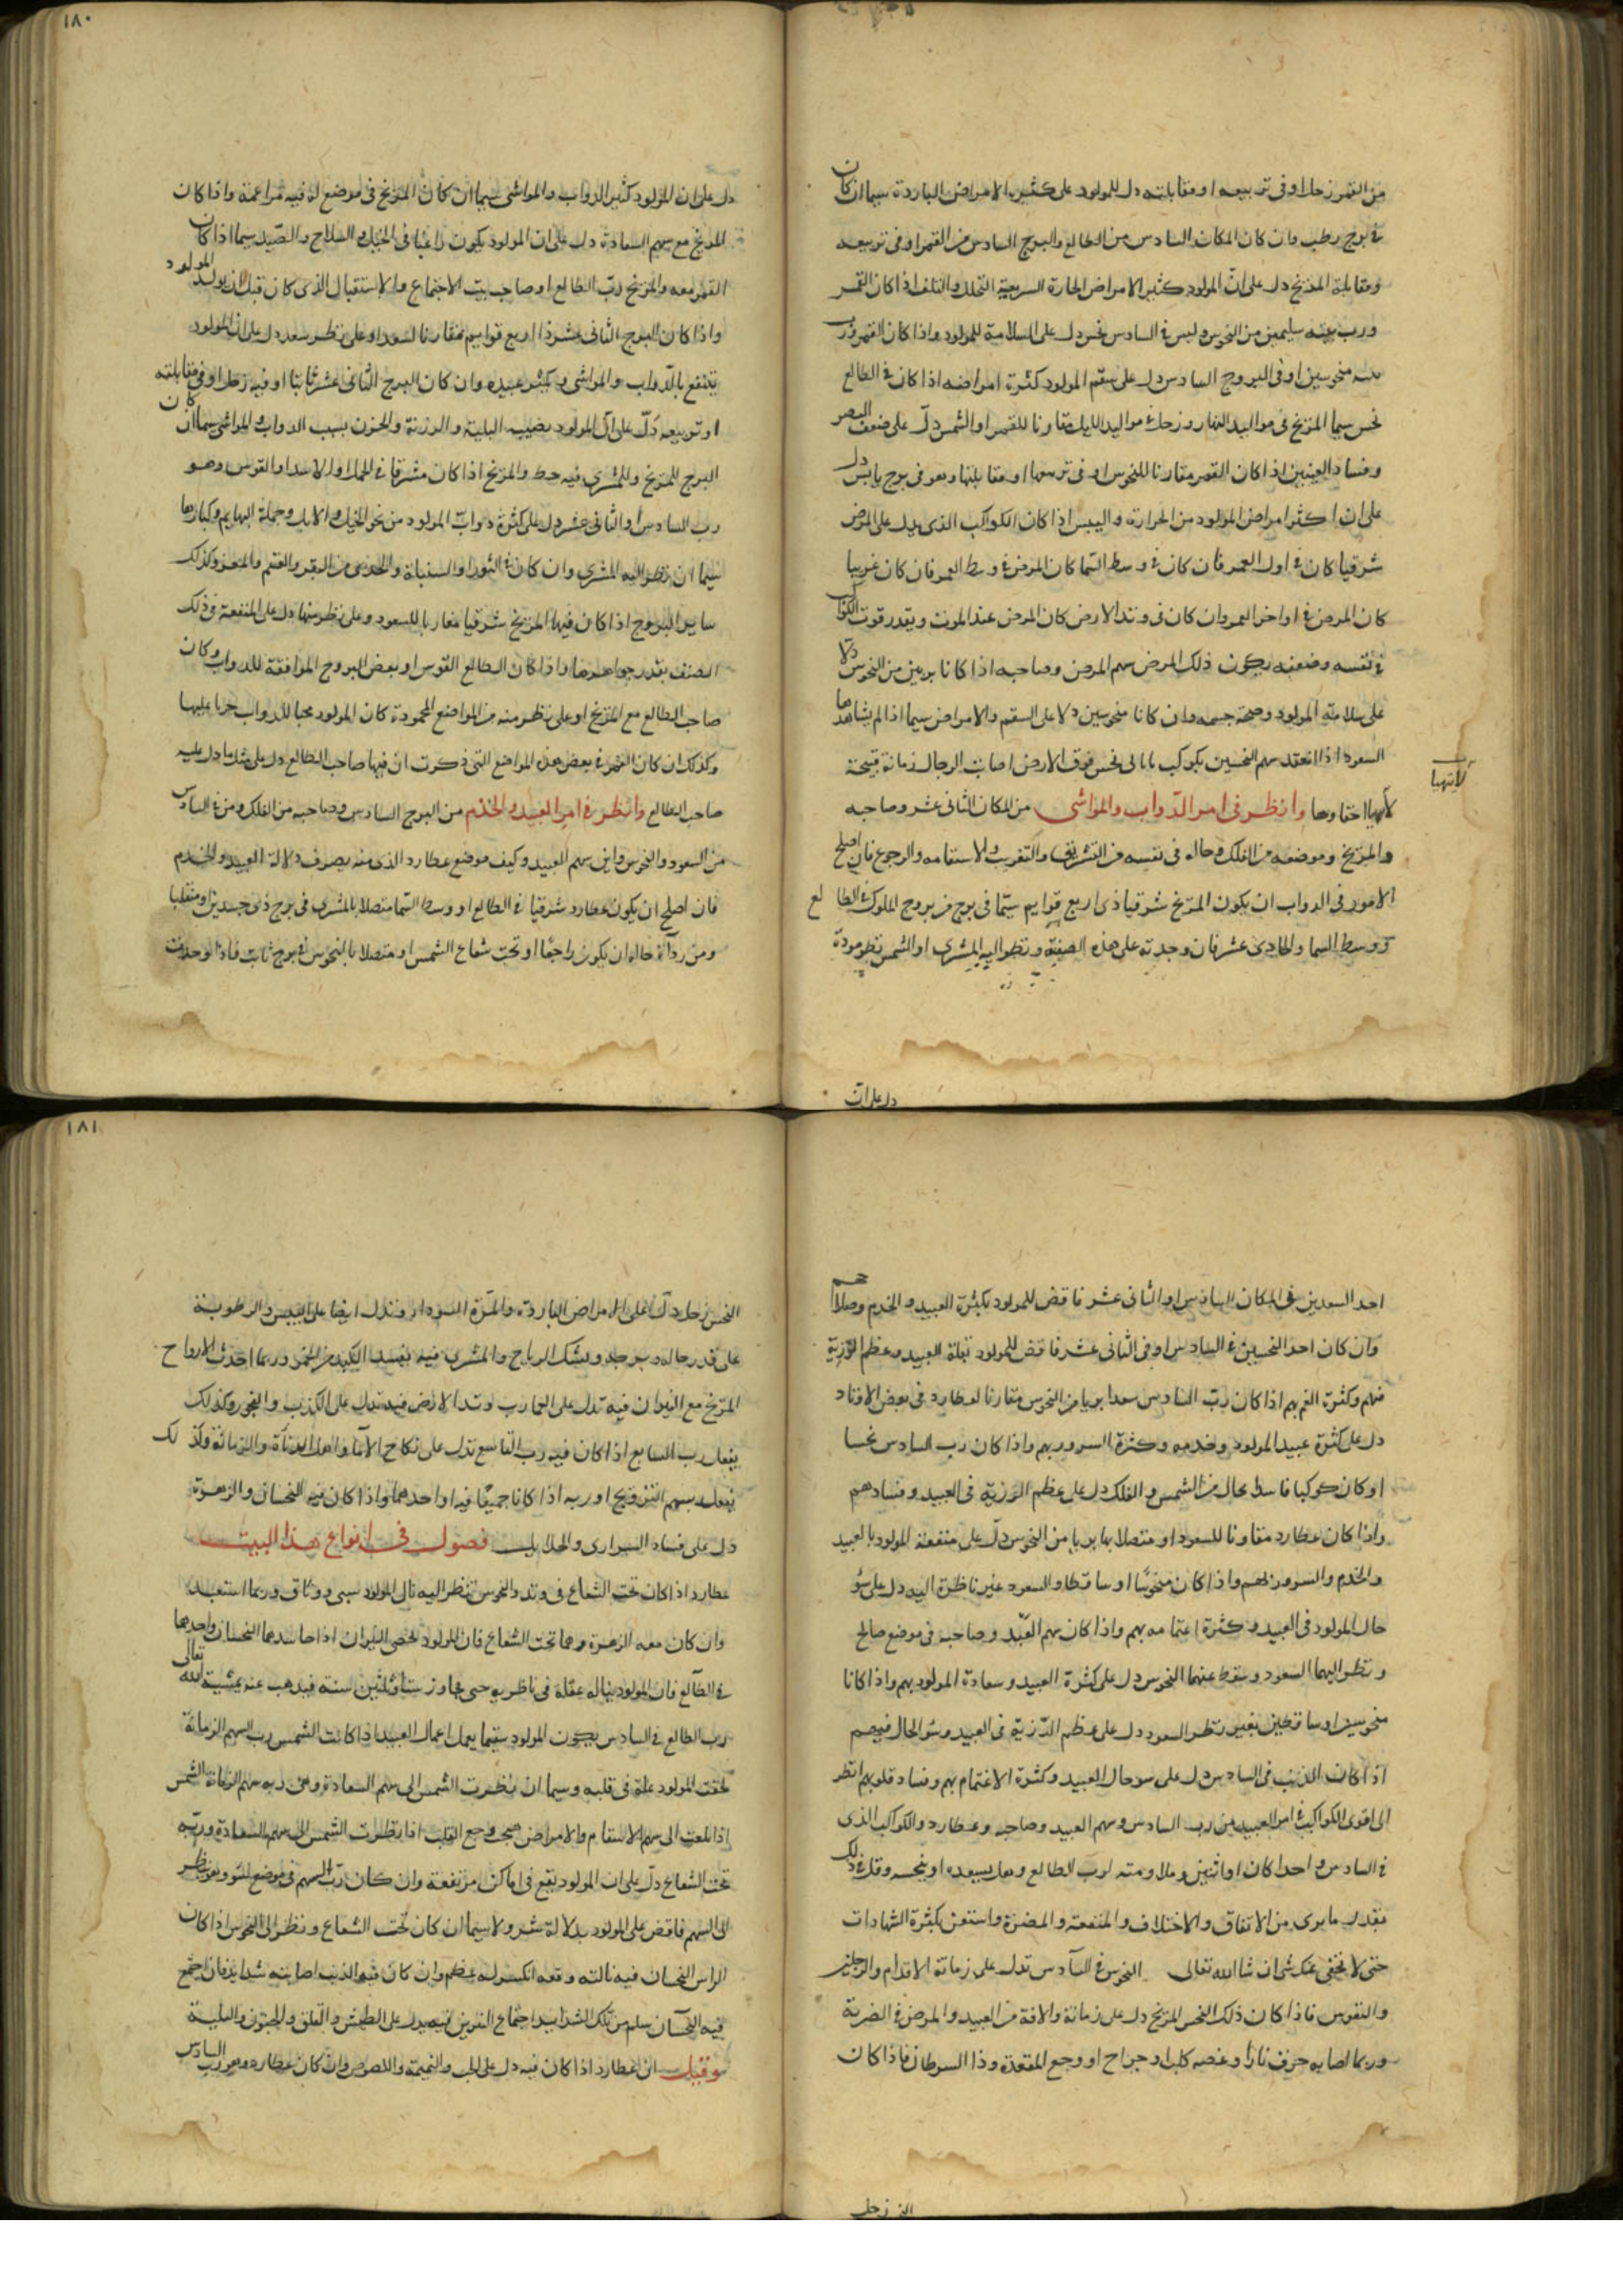 ١٨٠
من القمر زحل او فى تربيعه او مقابلته دل للمولود على كثير الامراض الباردة سيما ان كان
فى برج رطب وان كان المكان السادس من الطالع والبرج السادس من القمر او فى تربيعه
ومقابلة المريخ دل على انّ المولود كثير الامراض الحارة السريعة التحلل والتلف اذا كان القمر
ورب بيته سليمين من النحوس وليس فى السادس نحس دل على السلامة للمولود واذا كان القمر ورب
بيته منحوسين او فى البروج السادس دل على سقم المولود كثرة امراضه اذا كان فى الطالع
نحس سيما المريخ فى مواليد النهار وزحل فى مواليد الليل مقارنا للقمر او الشمس دلّ على ضعف البصر
وفساد العينين اذا كان القمر مقارنا للنحوس او فى تربيعها او مقابلتها وهو فى برج يابس دل
على ان اكثر امراض المولود من الحرارة واليبس اذا كان الكوكب الذى يدل على المرض
شرقيا كان فى اول العمر فان كان فى وسط السما كان المرض فى وسط العمر فان كان غربيا
كان المرض فى اواخر العمر وان كان فى وتد الارض كان المرض عند الموت وبقدر قوت الكوكب
فى نفسه وضعفه يكون ذلك المرض سهم المرض وصاحبه اذا كانا بريين من النحوس دلّا
على سلامة المولود وصحة جسمه وان كانا منحوسين دلا على السقم والامراض سيما اذا لم يشاهدهما
السعود اذا انعقد سهم النحسين بكوكب بابانى نحس فوق الارض اصابت الرجال زمانة قبيحة
لانهيا
لأنهيا احقاوها وانظر فى امر الدّواب والمواشى من المكان الثانى عشر وصاحبه
والمريخ وموضعه من الفلك وحاله فى نفسه من التشريق والتغريب والاستقامه والرجوع فان اصلح
الامور فى الدواب ان يكون المريخ شرقيا ذى اربع قوايم سيّما فى برج من بروج الملوك فى الطالع
ووسط السما والحادى عشر فان وجدته على هذه الصفة ونظر اليه المشترى او الشمس نظر مودة
دل على انّ
دل على ان المولود كثير الدواب والمواشى سيما ان كان المريخ فى موضع له فيه مزاعمة واذا كان
المريخ مع سهم السعادة دل على ان المولود يكون راغبا فى الخيل والسلاح والصّيد سيما اذا كان
القمر معه والمريخ ربّ الطالع او صاحب بيت الاجتماع والاستقبال الذى كان قبل ان يولد المولود
واذا كان البرج الثانى عشر ذا اربع قوايم مقارنا لسعد او على نظر سعد دل على ان المولود
ينتفع بالدّواب والمواشى ويكثر عبيده وان كان البرج الثانى عشر ثابتا او فيه زحل او فى مقابلته
او تربيعه دلّ على ان المولود يصيب البلية والرزية والحزن بسبب الدواب والمواشى سيما ان كان
البرج للمريخ وللمشترى فيه حظ والمريخ اذا كان مشرقا فى الحمل او الاسد او القوس وهو
رب السادس او الثانى عشر دل على كثرة دوابّ المولود من نحو الخيل والابل وجملة البهايم وكبارها
سيما ان نظر اليه المشترى وان كان فى الثور او السنبلة والجدى من البقر والغنم والمعز وكذلك
ساير البروج اذا كان فيها المريخ شرقيا مقارنا للسعود وعلى نظر منها دل على المنفعة فى ذلك
الصنف بقدر جواهرها واذا كان الطالع القوس او بعض البروج الموافقة للدواب وكان
صاحب الطالع مع المريخ او على نظر منه من المواضع المحمودة كان المولود محبا للدواب حريا عليها
وكذلك ان كان القمر فى بعض هذه المواضع التى ذكرت ان فيها صاحب الطالع دل على مثل ما دل عليه
صاحب الطالع وانظر فى امر العبيد والخدم من البرج السادس وصاحبه من الفلك ومن فى السادس
من السعود والنحوس واين سهم العبيد وكيف موضع عطارد الذى منه يصرف دلالة العبيد والخدم
فان اصلح ان يكون عطارد شرقيا فى الطالع او وسط السّما متصلا بالمشترى فى برج ذى جسدين او منقلبا
ومن ردآة حاله ان يكون راجعًا او تحت شعاع الشمس او متصلا بالنحوس فى برج ثابت فاذا وجدت
١٨١
احد السعدين فى المكان السادس او الثانى عشر فاقض للمولود بكثرة العبيد والخدم وصلاحهم
وان كان احد النحسين فى السادس او فى الثانى عشر فاقض للمولود بقلة العبيد وعظم الرّزية
فيهم وكثرة الغم بهم اذا كان ربّ السادس سعدا بريا من النحوس مقارنا لعطارد فى بعض الاوتاد
دل على كثرة عبيد المولود وخدمه وكثرة السرور بهم واذا كان رب السادس نحسا
او كان كوكبا فاسدا بحال من الشمس والفلك دل على عظم الرزية فى العبيد وفسادهم
واذا كان عطارد مقارنا للسعود او متصلا بها بريا من النحوس دلّ على منفعة المولود بالعبيد
والخدم والسرور لهم واذا كان منحوسًا او ساقطا والسعود غير ناظرة اليه دل على سوٌ
حال المولود فى العبيد وكثرة اغتمامه بهم واذا كان سهم العبّد وصاحبه فى موضع صالح
ونظر اليهما السعود وسقط عنهما النحوس دل على كثرة العبيد وسعادة المولود بهم واذا كانا
منحوسين او ساقطين بغير نظر السعود دل على عظم الرّزية فى العبيد وسٌو الحال فيهم
اذا كان الذنب فى السادس دل على سو حال العبيد وكثرة الاغتمام بهم وفساد قلوبهم انظر
الى اقوى الكواكب فى امر العبيد من رب السادس وسهم العبيد وصاحبه وعطارد والكوكب الذى
فى السادس واحدا كان او اثنين وملاومته لرب الطالع وهل يسعده او ينحسه وقل فى ذلك
بقدر ما يرى من الاتفاق والاختلاف والمنفعة والمضرة واستعن بكثرة الشهادات
حتى لا يخفى عنك شى ان شا الله تعالى النحوس فى السآدس تدل على زمانة الاقدام والرجلين
والنقرس فاذا كان ذلك النحس المريخ دل على زمانة والافة من العبيد والمرض فى الضربة
وربما اصابه حرق نار او عضه كلب او جراح او وجع المقعدة وذا السرطان فاذا كان
النحس زحل
النحس زحل دلّ على الامراض الباردة والمرّة السودا وتدل ايضا على اليبس والرطوبة
على قدر حاله وبرجه ويشك الرياح والمشترى فيه يفسد الكبد من الخمر وربما احدث الارواح
المريخ مع النيران فيه تدل على الهارب وتد الارض فيه تدل على الكذب والفجور وكذلك
يفعل رب السابع اذا كان فيه رب التاسع تدل على نكاح الامآ واهل الدنآة والزمانة وكذلك
يفعل سهم التزويج او ربه اذا كانا جميعًا فيه او احدهما واذا كان فيه النحسان والزهرة
دل على فساد السرارى والحلايل فصول فى انواع هذا البيت
عطارد اذا كان تحت الشعاع فى وتد والنحوس تنظر اليه نال المولود سبى ووثاق وربما استعبد
وان كان معه الزهرة وهما تحت الشعاع فان المولود يخصى النيران اذا حاسدهما النحسان واحدهما
فى الطآلع فان المولود يناله عقلة فى ناظريه حتى يجاوز ستا وثلثين سنته فيذهب عنه بمشيية الله تعالى
رب الطالع فى السادس يكون المولود سقيما يعمل اعمال العبيد اذا كانت الشمس رب السهم الزمانة
لحقت المولود علة فى قلبه وسيما ان نظرت الشمس الى سهم السعادة وهى ربه سهم الزمانة الشمس
اذا بلغت الى سهم الاسقام والامراض هيجت وجع القلب اذا نظرت الشمس الى سهم السعادة وربّه
تحت الشعاع دلّ على ان المولود يقع فى اماكن مرتفعة وان كان ربّ السهم فى موضع لسو وهو ينظر
الى السهم فاقض على المولود بدلالة شر ولا سيما ان كان تحت الشعاع ونظر الى النحوس اذا كان
الراس النحسان فيه نالته وقعه انكسر له عظم وان كان فيه الذنب اصابته شدايد فان اجتمع
فيه النحسآن سلم من تلك الشدايد اجتماع النيرين فيه يدل على الطيش والقلق والجنون والبلية
وقيل ان عطارد اذا كان فيه دل على الحب والنميمة واللصوص وان كان عطارد وهو رب السادس